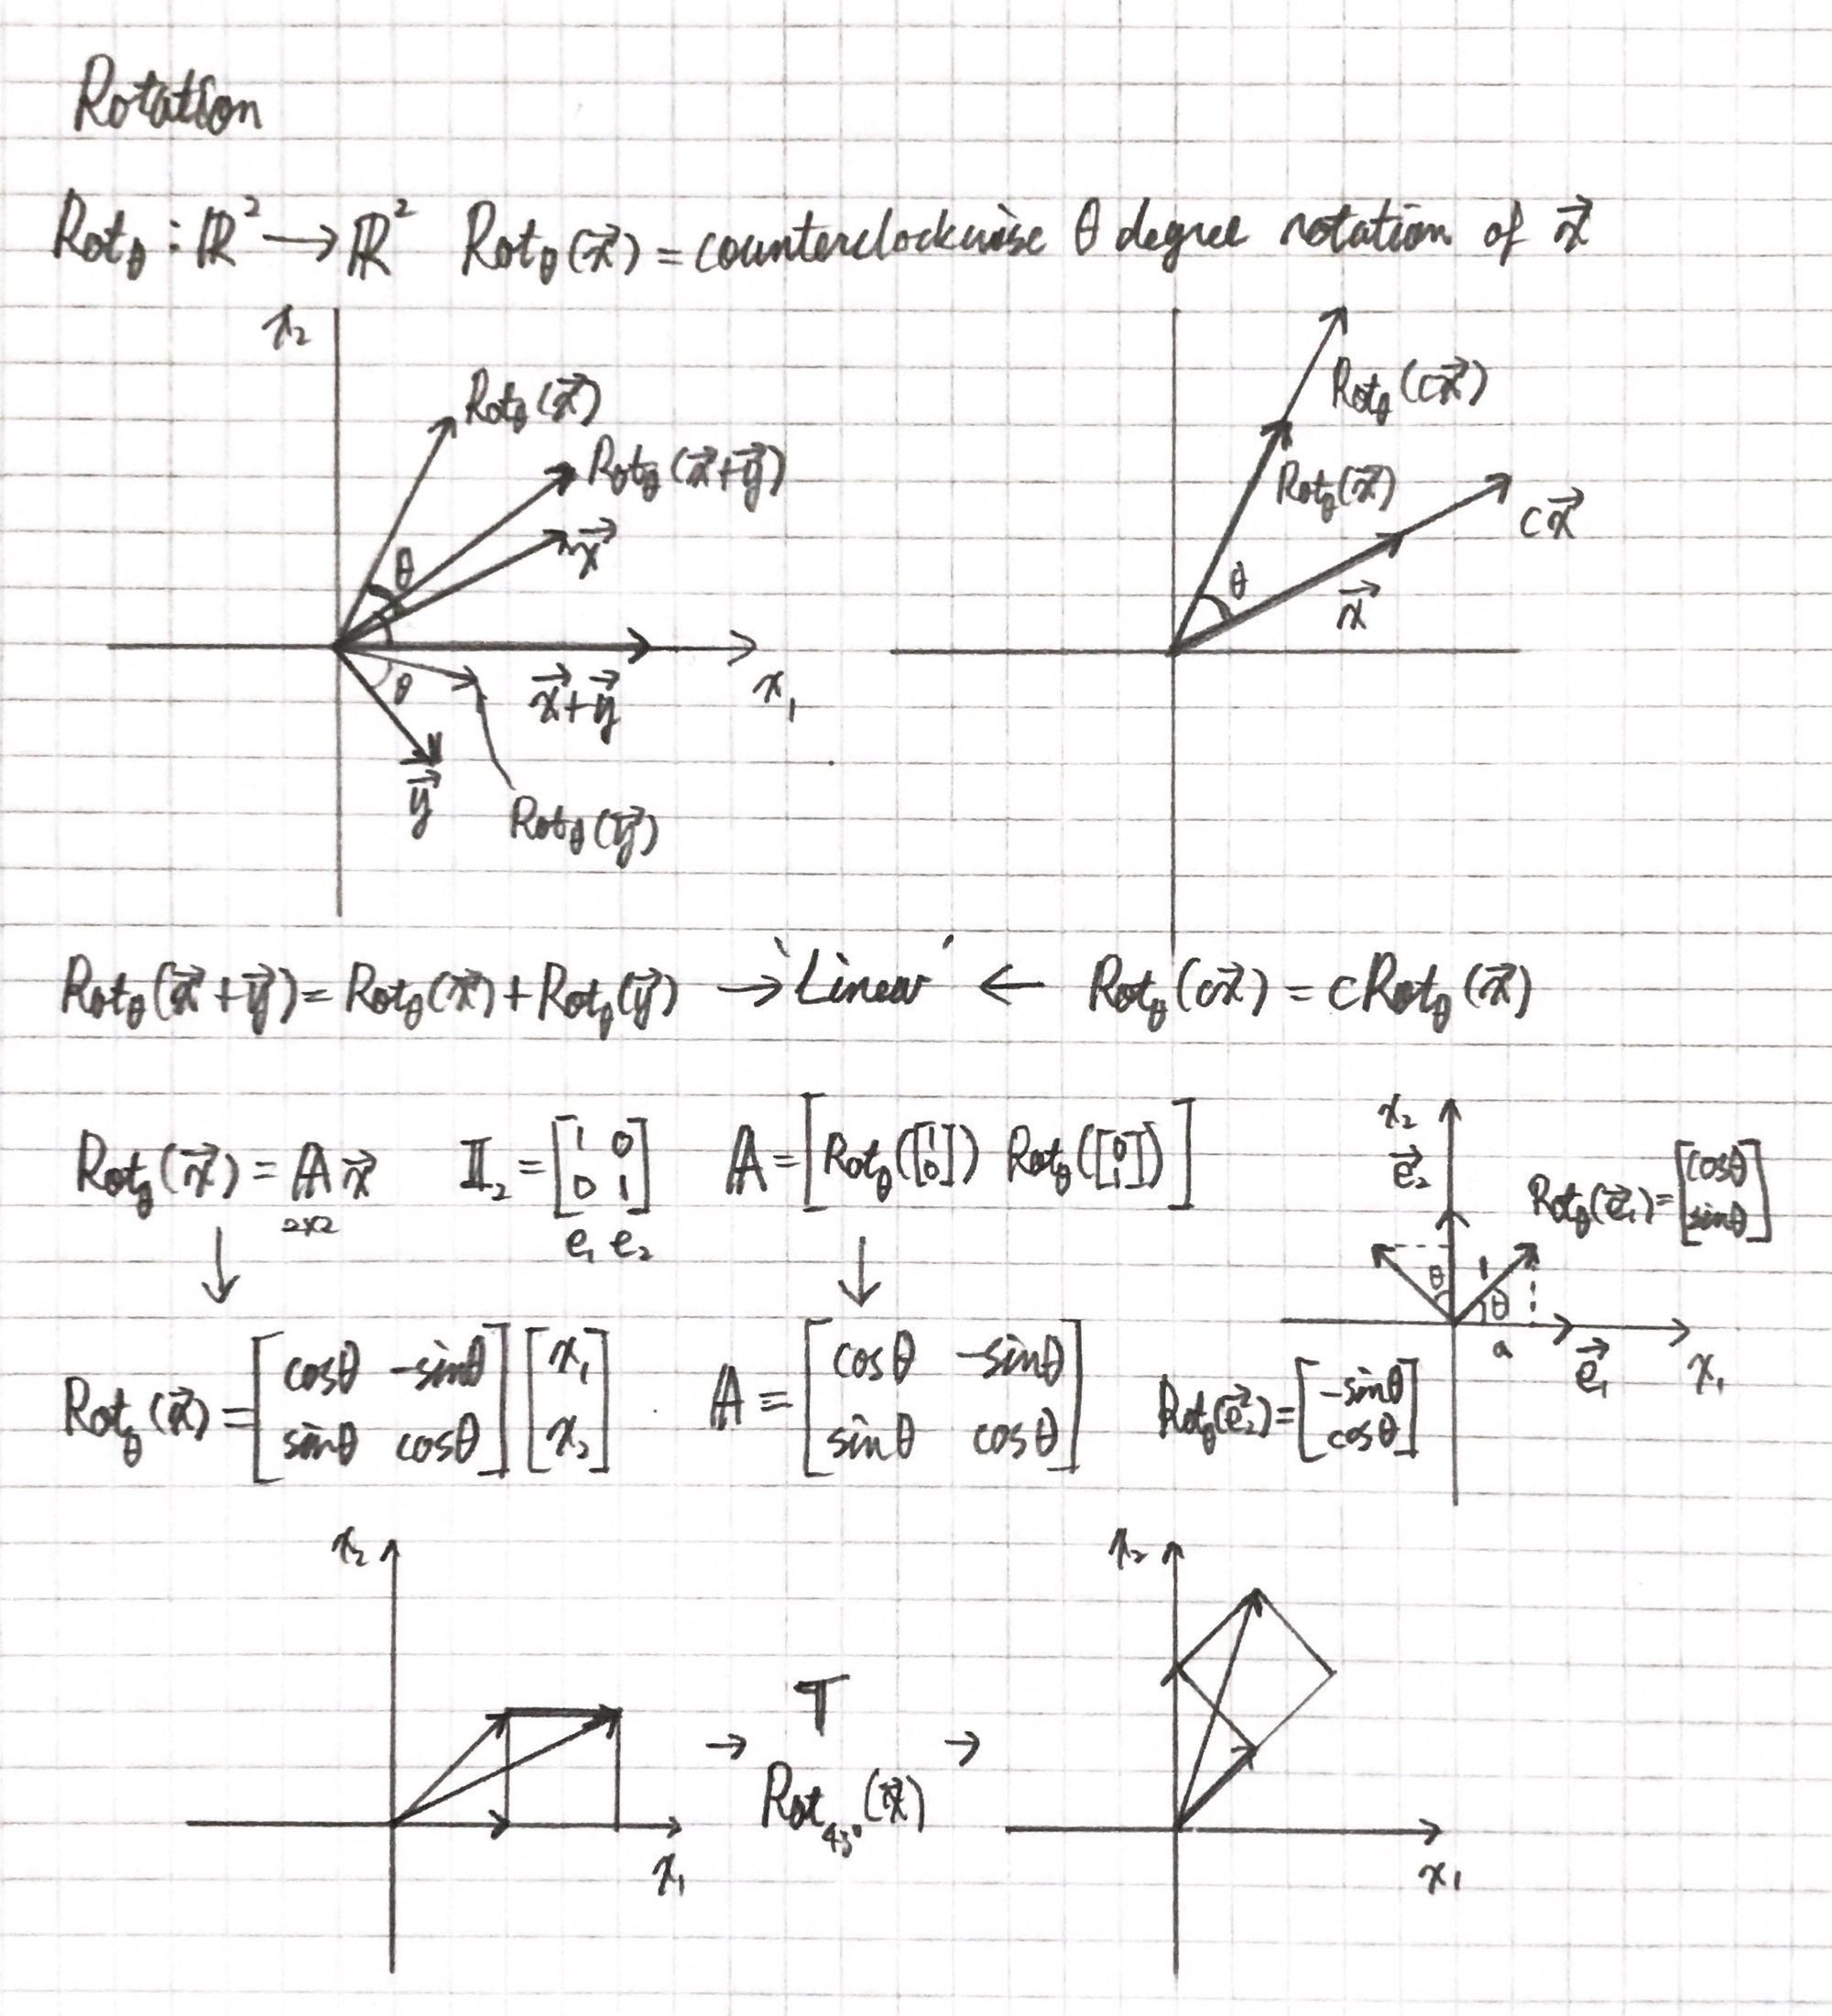 Rotation
Rot_θ : ℝ² → ℝ² Rot_θ(x⃗) = counterclockwise θ degree rotation of x⃗
x₂
Rot_θ(x⃗)
Rot_θ(x⃗+y⃗)
x⃗
θ
x⃗+y⃗
x₁
θ
y⃗
Rot_θ(y⃗)
Rot_θ(cx⃗)
Rot_θ(x⃗)
cx⃗
θ
x⃗
Rot_θ(x⃗+y⃗) = Rot_θ(x⃗) + Rot_θ(y⃗) → 'Linear' ← Rot_θ(cx⃗) = cRot_θ(x⃗)
Rot_θ(x⃗) = 𝔸x⃗ 𝕀₂ = [1 0; 0 1] 𝔸 = [Rot_θ([1; 0]) Rot_θ([0; 1])]
2×2 e₁ e₂
↓ ↓
Rot_θ(x⃗) = [cosθ -sinθ; sinθ cosθ] [x₁; x₂] 𝔸 = [cosθ -sinθ; sinθ cosθ]
x₂
e⃗₂
Rot_θ(e⃗₁) = [cosθ; sinθ]
θ 1 θ
a e⃗₁ x₁
Rot_θ(e⃗₂) = [-sinθ; cosθ]
x₂
x₁
→ T →
Rot_45°(x⃗)
x₂
x₁